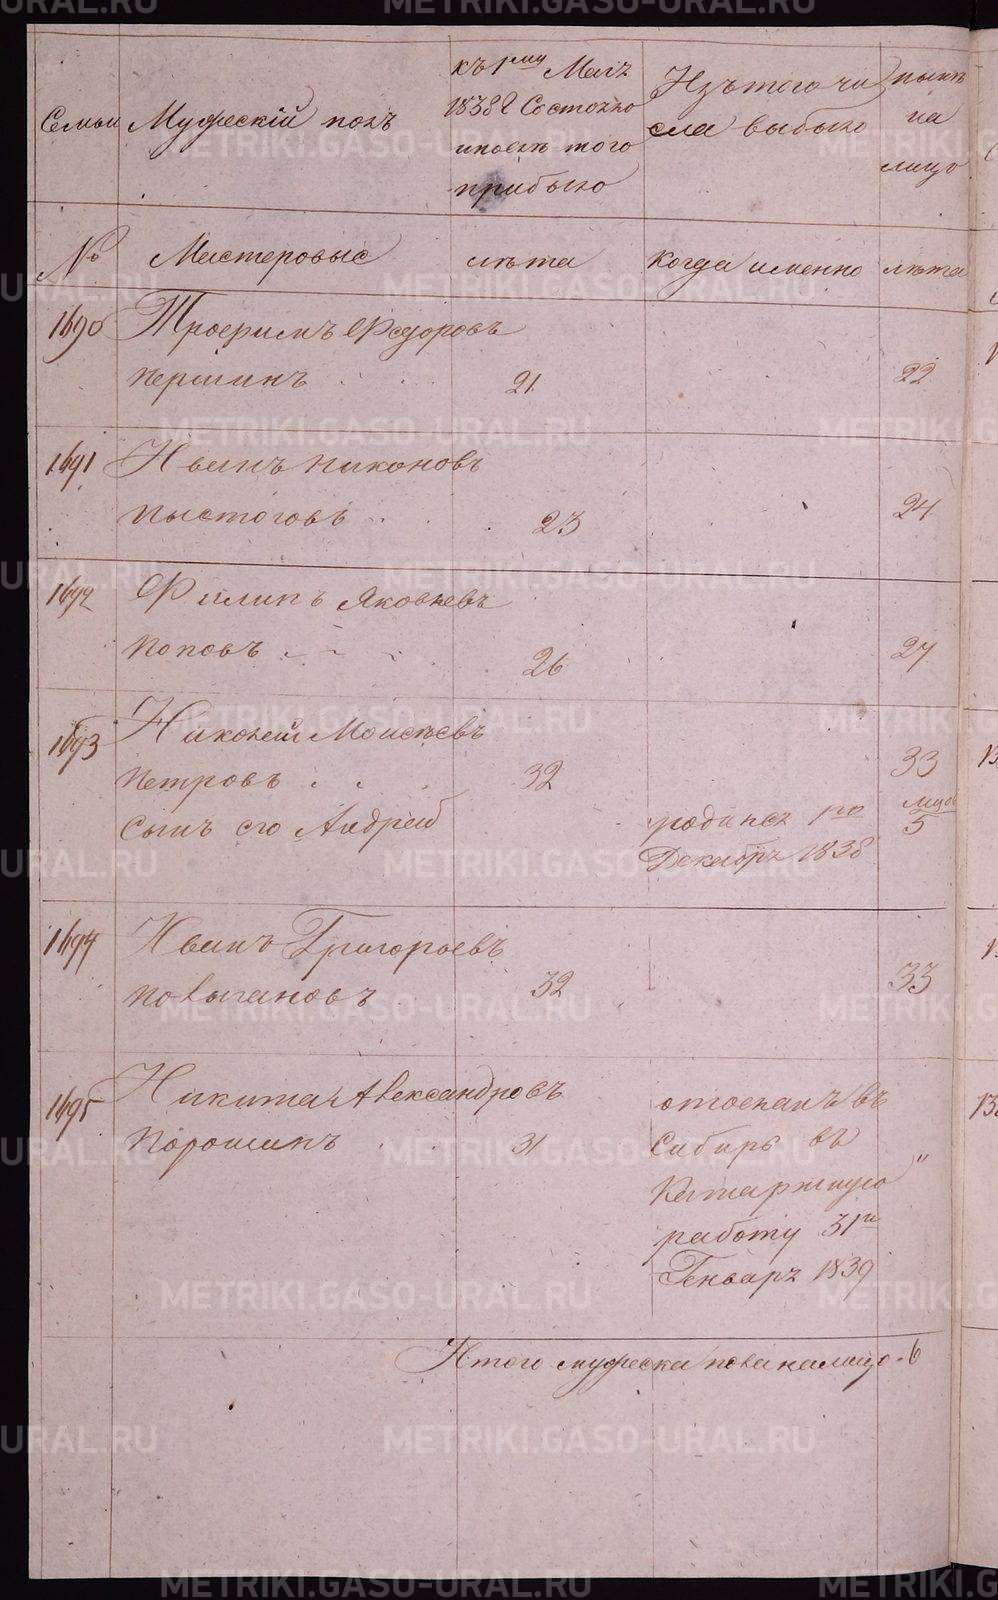 Семьи
Мужескій полъ
къ 1му Мая
1838 г Состояло
и послѣ того
прибыло
Изъ того чи
сла выбыло
нынѣ
на
лицо
№
Мастеровые
лѣта
когда именно
лѣта
1690
Трофимъ Федоровъ
Першинъ . . . 21. 22
1691
Иванъ Никоновъ
Пыстоговъ . . . 23 24
1692
Филипъ Яковлевъ
Поповъ . . . 26 27
1693
Николай Моисѣевъ
Петровъ . . . 32 33
Сынъ его Андрей родился 1го 5
Декабря 1838
1694
Иванъ Григорьевъ
32 33
1695
Никита Александровъ отосланъ въ
Порошинъ . . 31 Сибирь въ
Катаржную "
работу 31го
Генваря 1839
Итого мужеска пола на лицо - 6
METRIKI.GASO-URAL.RU